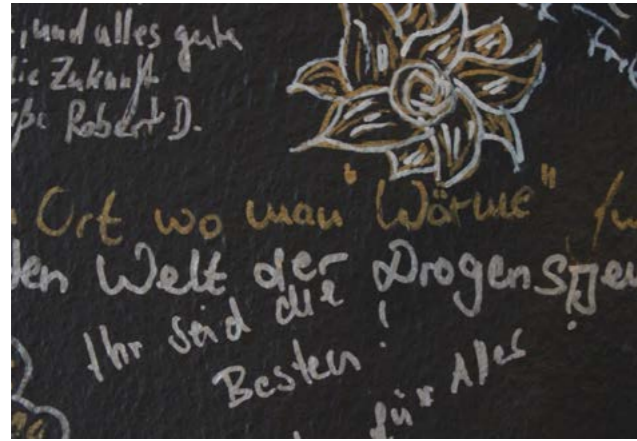 , und alles gute
die Zukunft
Robert D.
Ort wo man "Wärme"
den Welt der Drogens
Ihr seid die
Besten!
für Alles